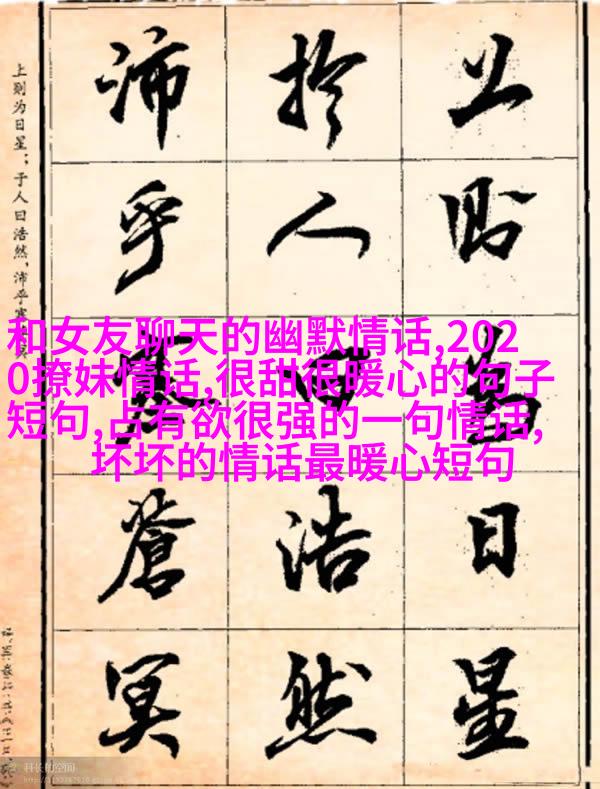 上則為日星
於人曰浩然
沛乎塞蒼冥
上则为日星；于人曰浩然，沛乎塞
和女友聊天的幽默情话,202
0撩妹情话,很甜很暖心的句子
短句,占有欲很强的一句情话,
坏坏的情话最暖心短句
科长的空间